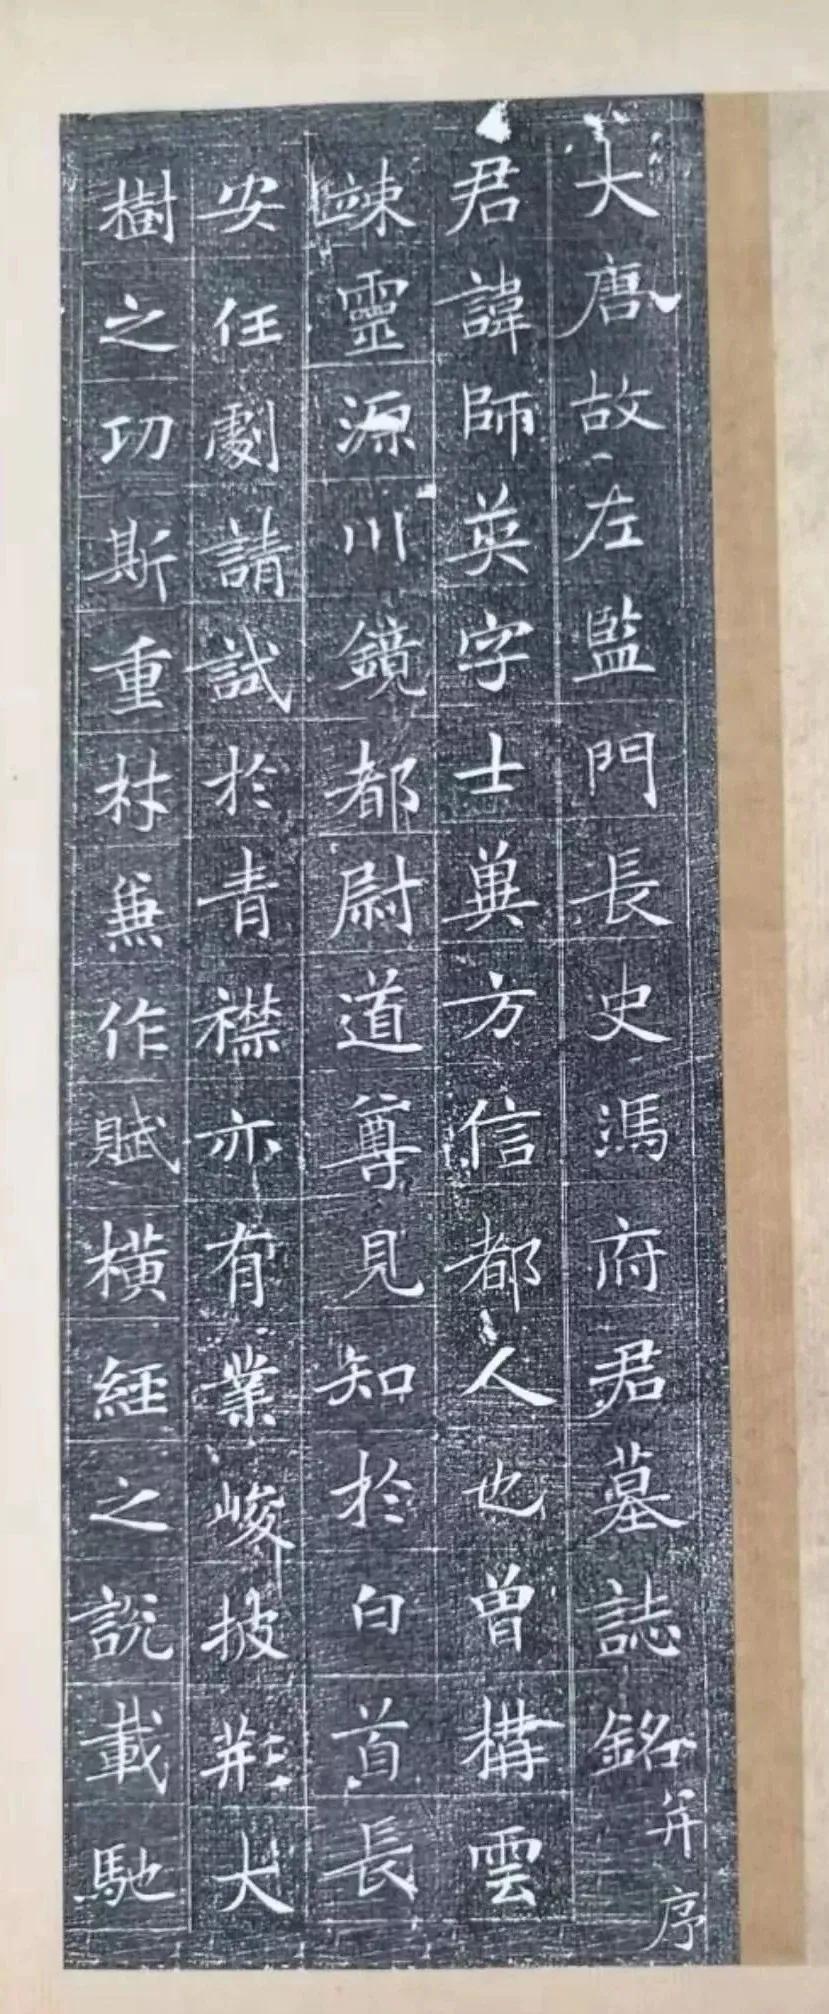 大唐故左監門長史馮府君墓誌銘并序
君諱師英字士巽方信都人也曾構雲
竦靈源川鏡都尉道尊見知於白首長
安任劇請試於青襟亦有業峻披荆大
樹之功斯重材兼作賦橫經之説載馳